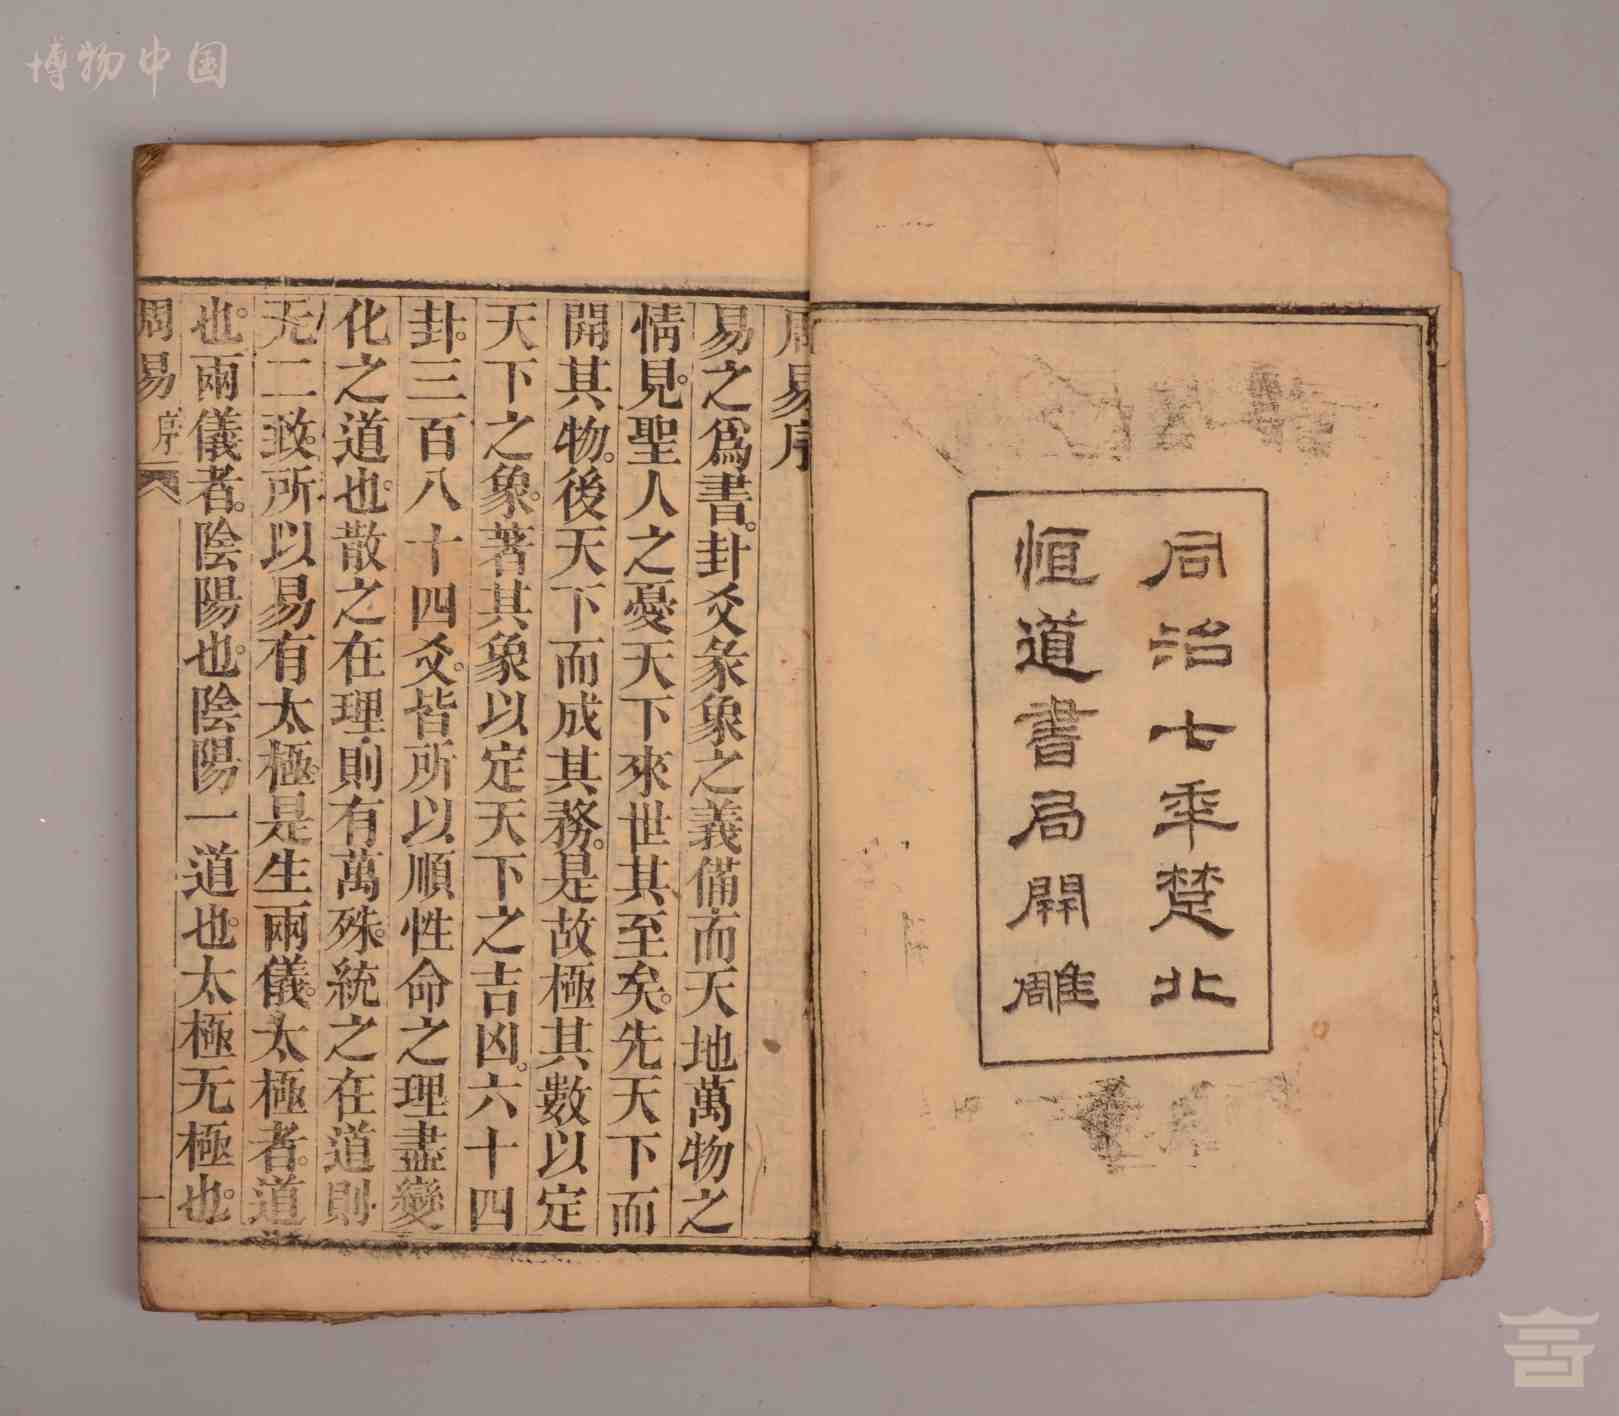 博物中国
同治七年楚北
恒道書局開雕
周易序
易之爲書。卦爻彖象之義備而天地萬物之
情見。聖人之憂天下來世其至矣。先天下而
開其物。後天下而成其務。是故極其數以定
天下之象。著其象以定天下之吉凶。六十四
卦。三百八十四爻。皆所以順性命之理盡變
化之道也。散之在理則有萬殊。統之在道則
无二致。所以易有太極是生兩儀。太極者。道
也。兩儀者。陰陽也。陰陽一道也。太極无極也。
周易 序 一